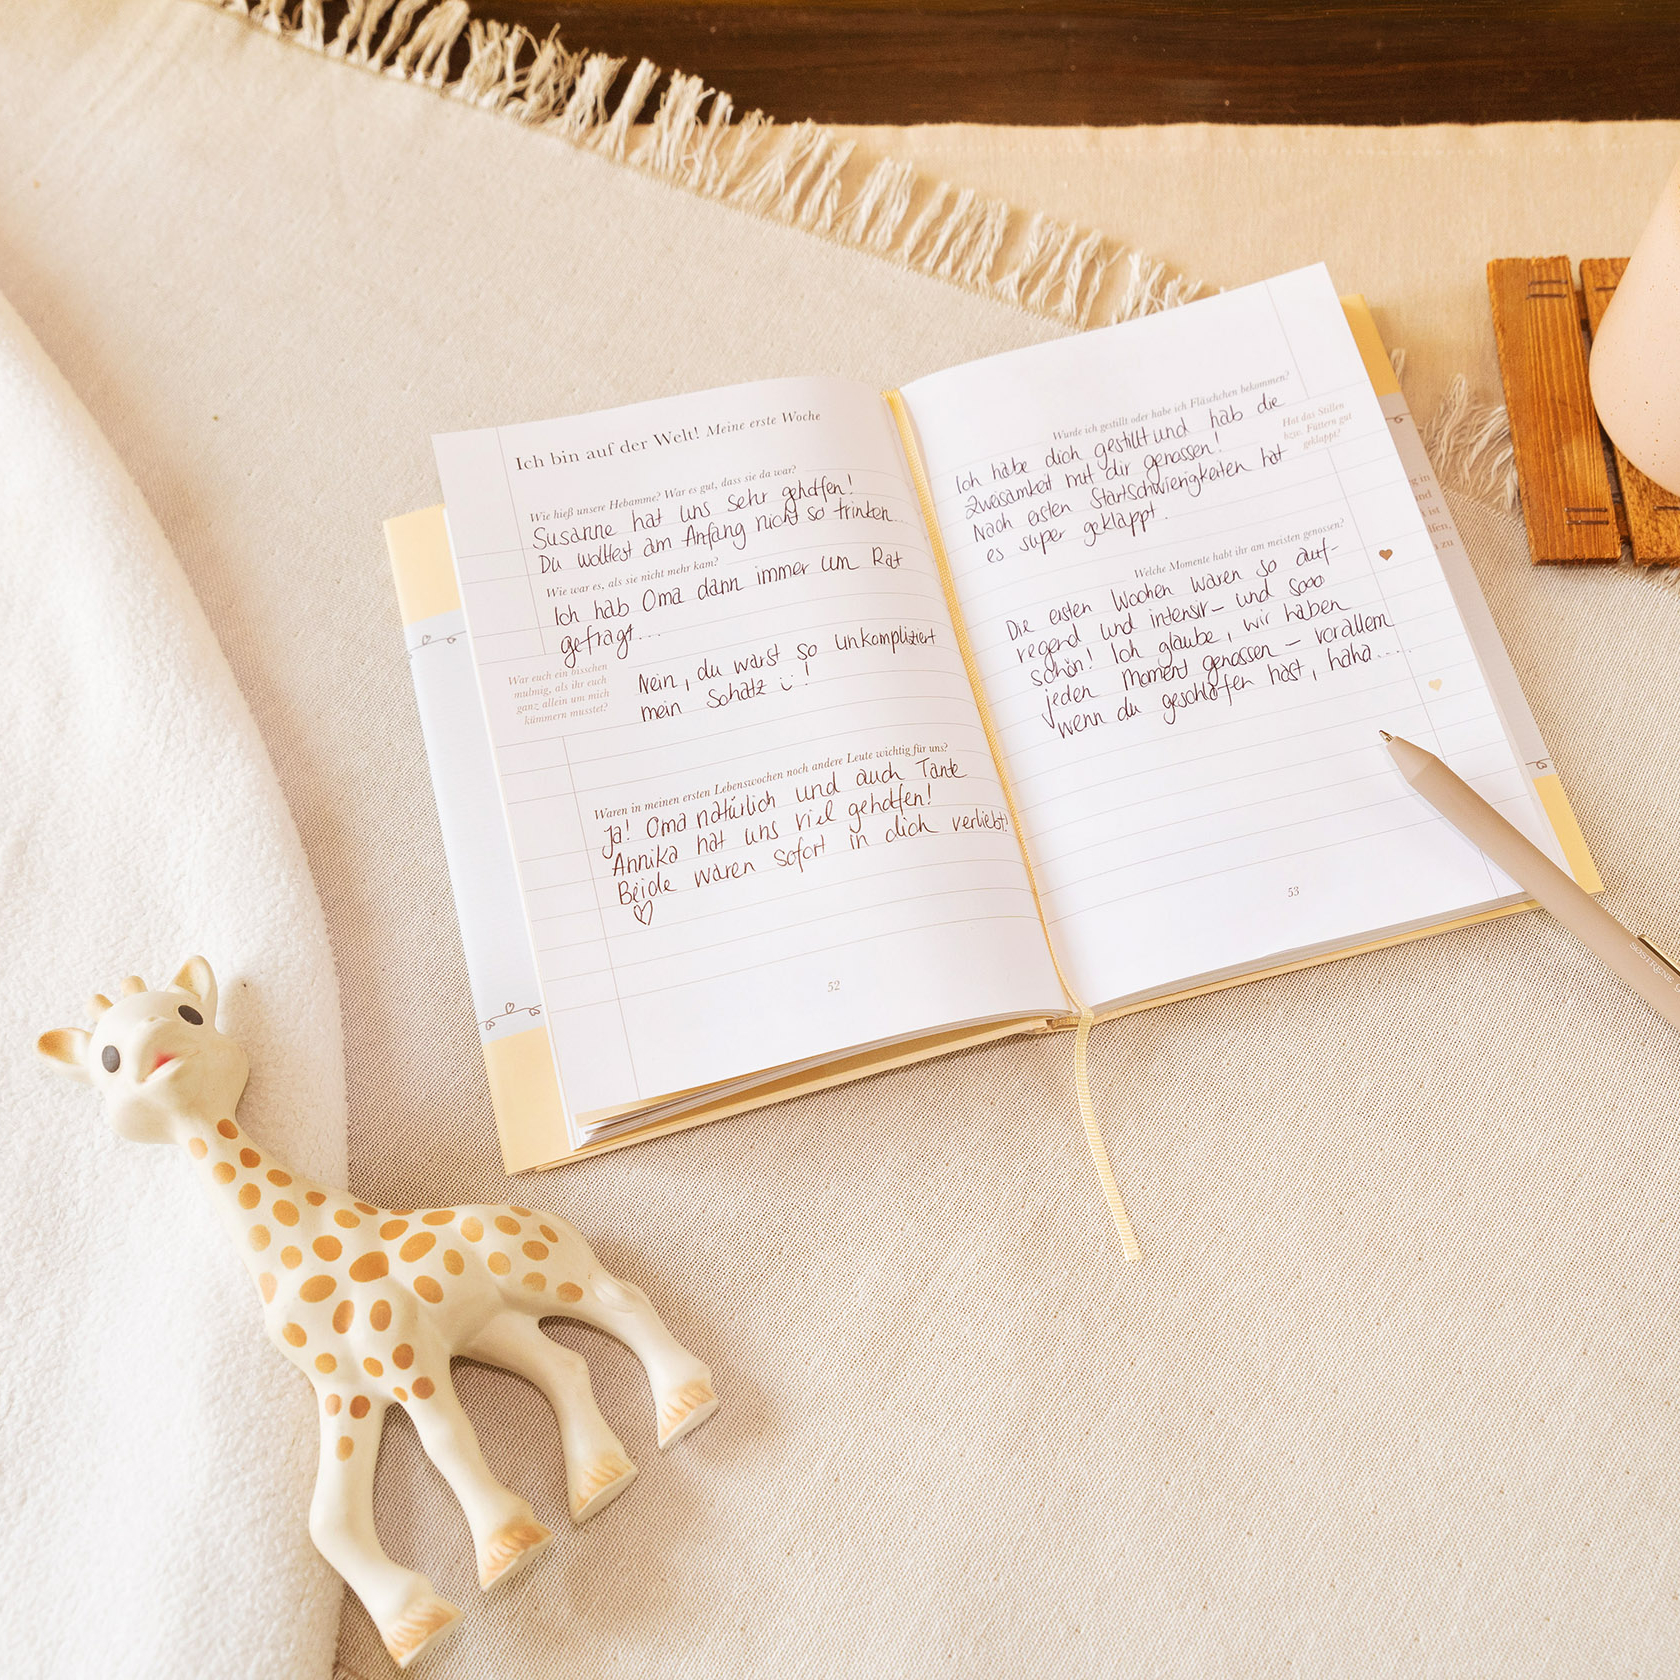 Ich bin auf der Welt! Meine erste Woche
Wie hieß unsere Hebamme? War es gut, dass sie da war?
Susanne hat uns sehr geholfen!
Du wolltest am Anfang nicht so trinken...
Wie war es, als sie nicht mehr kam?
Ich hab Oma dann immer um Rat
gefragt...
War euch ein bisschen
mulmig, als ihr euch
ganz allein um mich
kümmern musstet?
Nein, du warst so unkompliziert
mein Schatz !
Waren in meinen ersten Lebenswochen noch andere Leute wichtig für uns?
Ja! Oma natürlich und auch Tante
Annika hat uns viel geholfen!
Beide waren sofort in dich verliebt!
52
Wurde ich gestillt oder habe ich Fläschchen bekommen?
Ich habe dich gestillt und hab die
Zweisamkeit mit dir genossen!
Hat das Stillen
bzw. Füttern gut
geklappt?
Nach ersten Startschwierigkeiten hat
es super geklappt.
Welche Momente habt ihr am meisten genossen?
Die ersten Wochen waren so auf-
regend und intensiv- und sooo
schön! Ich glaube, wir haben
jeden Moment genossen - vorallem
wenn du geschlafen hast, haha.....
53
SØSTRENE